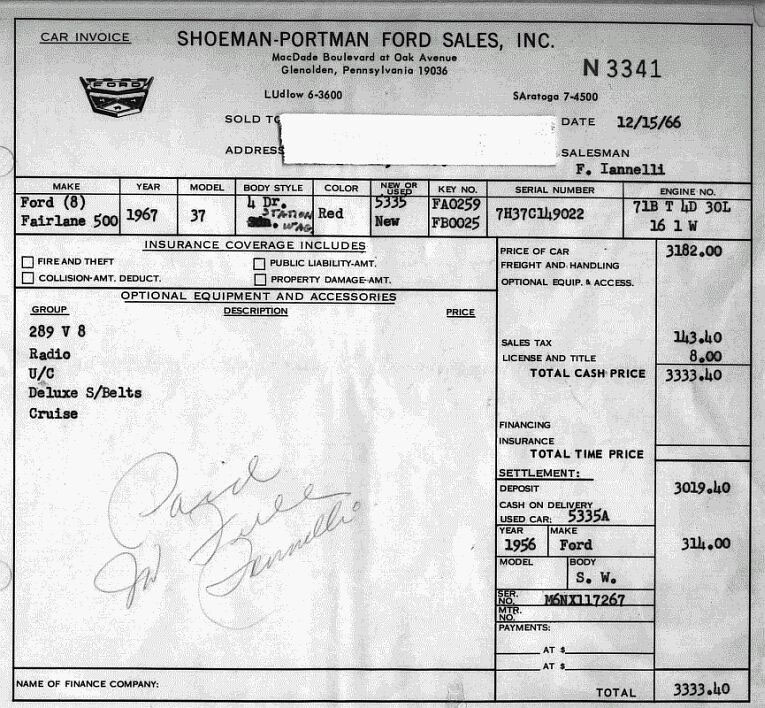 CAR INVOICE
SHOEMAN-PORTMAN FORD SALES, INC.
MacDade Boulevard at Oak Avenue
Glenolden, Pennsylvania 19036
N 3341
FORD
LUdlow 6-3600 SAratoga 7-4500
SOLD TO DATE 12/15/66
ADDRESS SALESMAN
F. Iannelli
MAKE YEAR MODEL BODY STYLE COLOR NEW OR USED KEY NO. SERIAL NUMBER ENGINE NO.
Ford (8) 1967 37 4 Dr. Red 5335 FA0259 7H37C149022 71B T 4D 30L
Fairlane 500 STATION WAG. New FB0025 16 1 W
INSURANCE COVERAGE INCLUDES
FIRE AND THEFT PUBLIC LIABILITY-AMT.
COLLISION-AMT. DEDUCT. PROPERTY DAMAGE-AMT.
OPTIONAL EQUIPMENT AND ACCESSORIES
GROUP DESCRIPTION PRICE
289 V 8
Radio
U/C
Deluxe S/Belts
Cruise
Paid
In Full
Iannelli
PRICE OF CAR 3182.00
FREIGHT AND HANDLING
OPTIONAL EQUIP. & ACCESS.
SALES TAX 143.40
LICENSE AND TITLE 8.00
TOTAL CASH PRICE 3333.40
FINANCING
INSURANCE
TOTAL TIME PRICE
SETTLEMENT:
DEPOSIT 3019.40
CASH ON DELIVERY
USED CAR: 5335A
YEAR MAKE
1956 Ford 314.00
MODEL BODY
S. W.
SER. NO. M6NX117267
MTR. NO.
PAYMENTS:
AT $
AT $
NAME OF FINANCE COMPANY:
TOTAL 3333.40